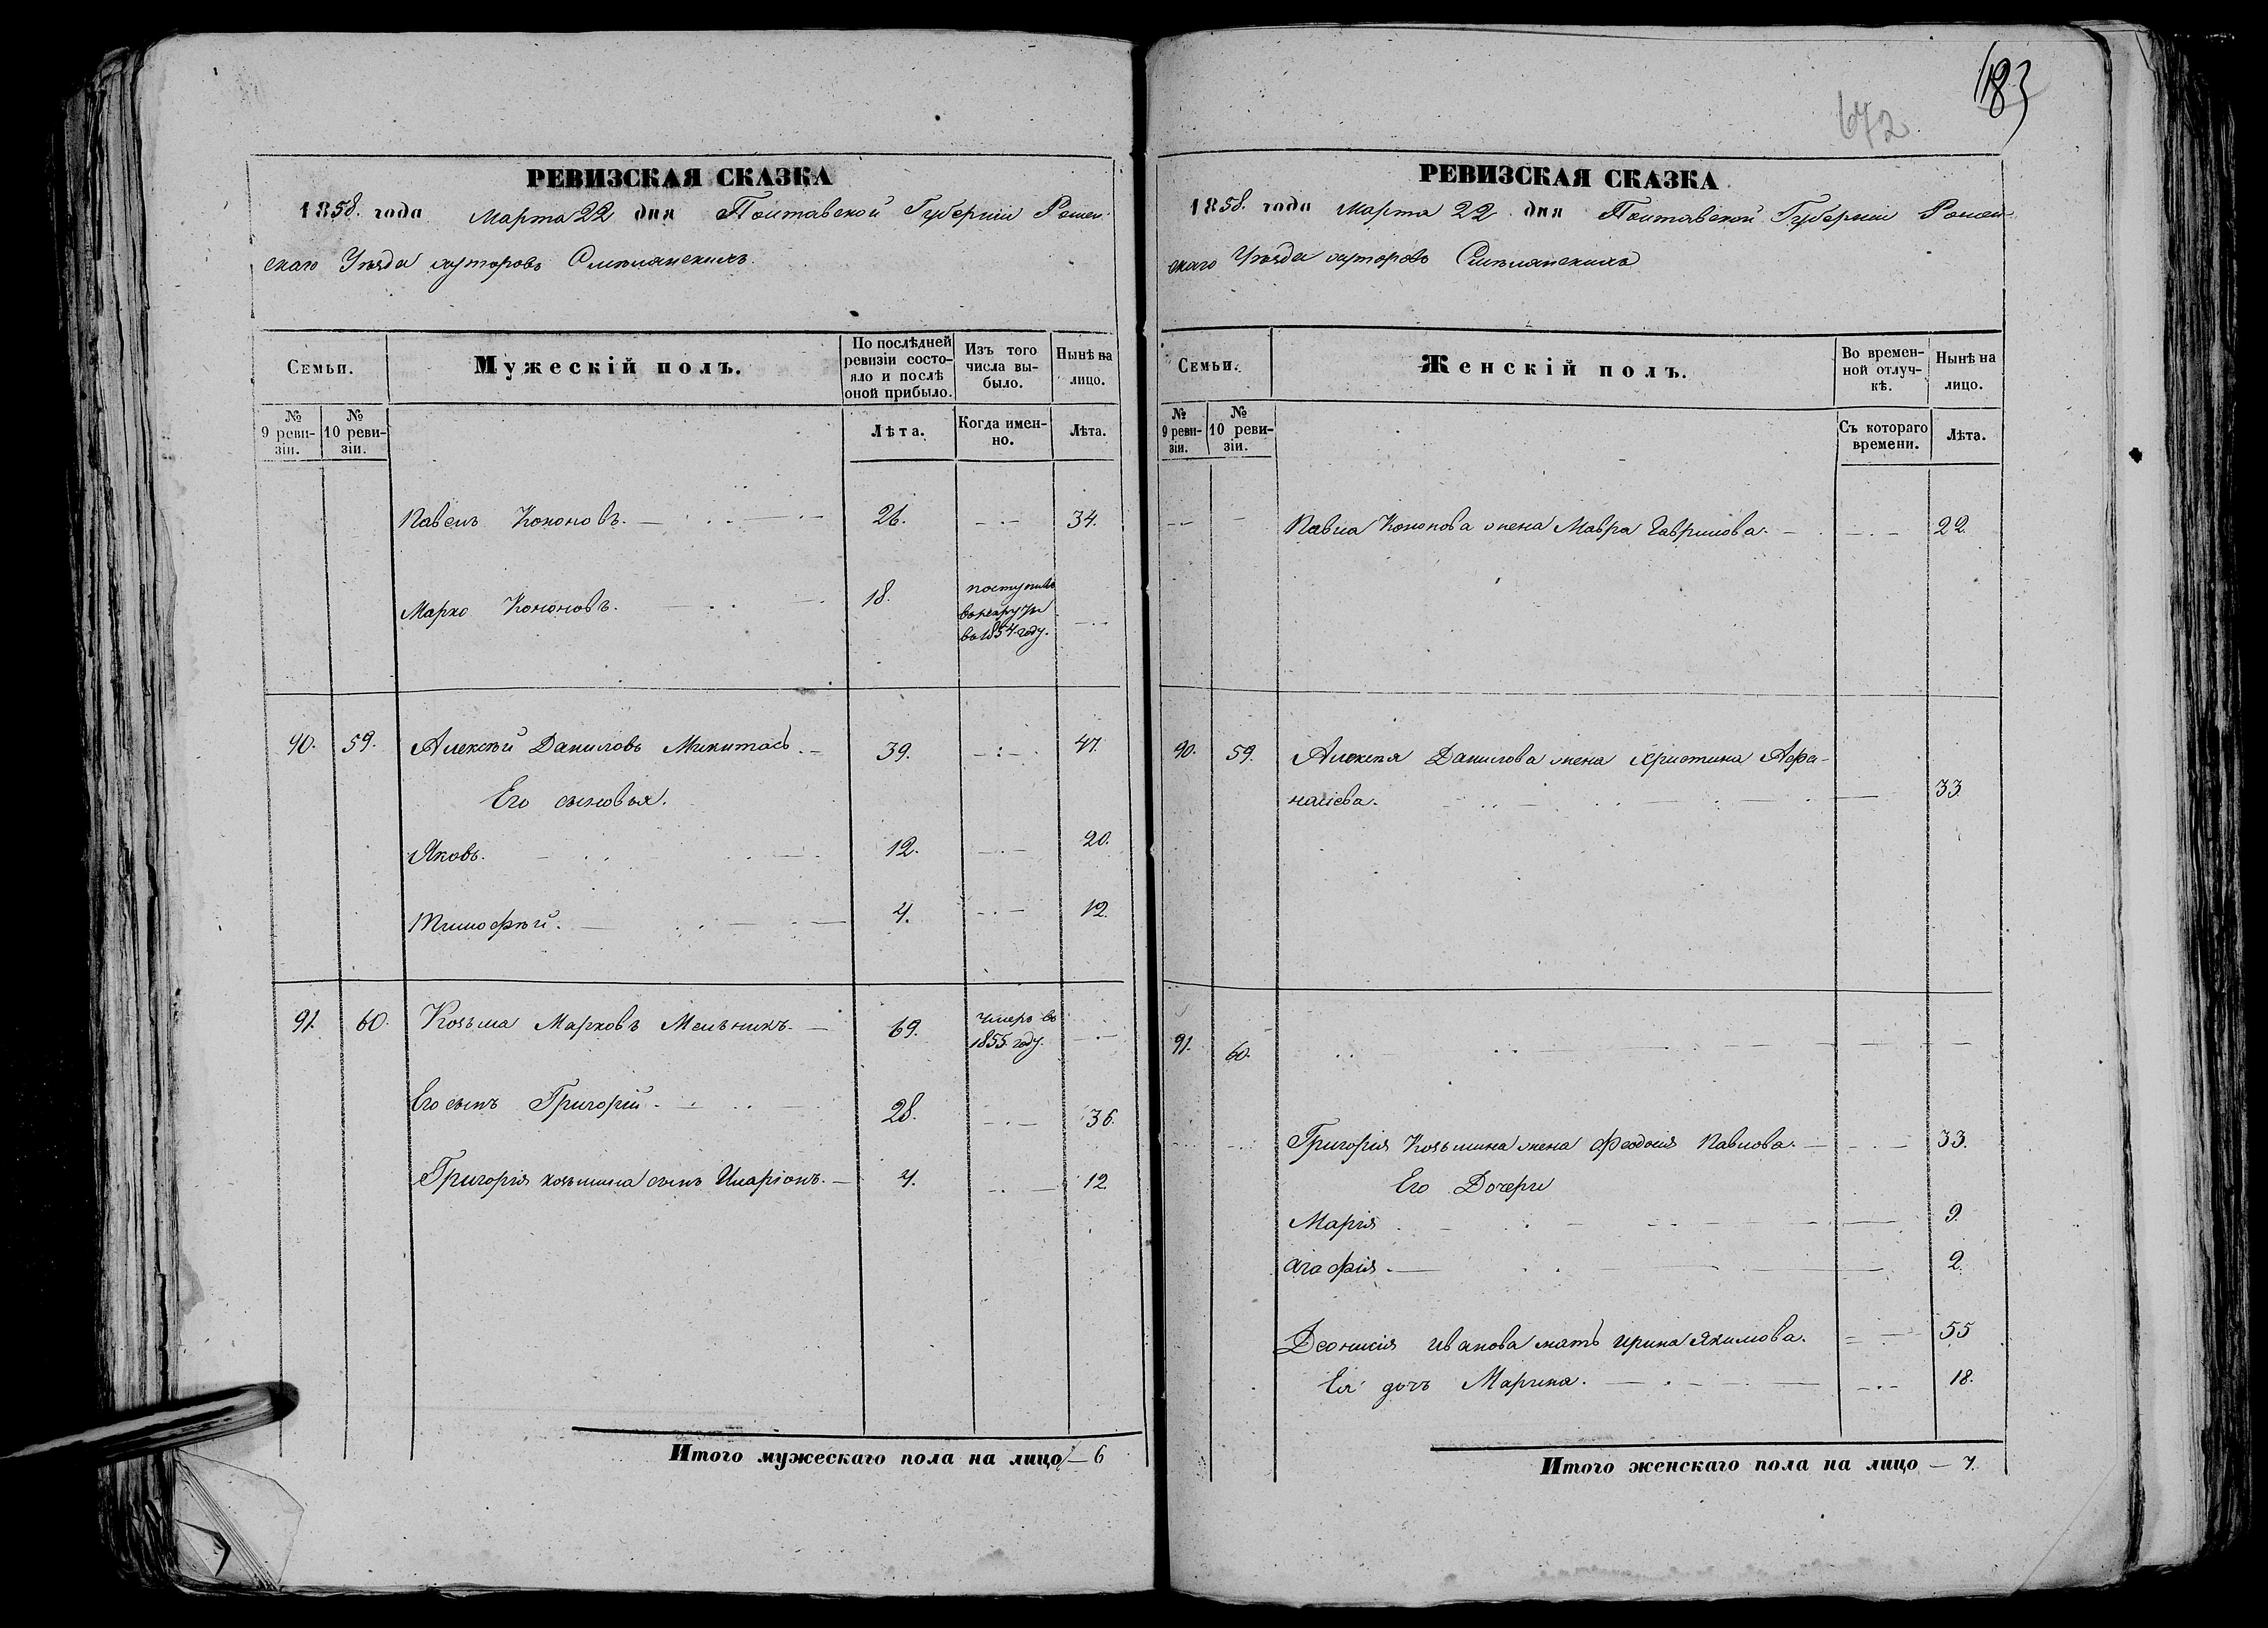 183
672
РЕВИЗСКАЯ СКАЗКА
1858. года Марта 22 дня Полтавской Губерніи Ромен-
скаго Уѣзда хуторовъ Смѣлянскихъ.
Семьи.
Мужескій полъ.
По послѣдней ревизіи состо-
яло и послѣ оной прибыло.
Изъ того числа вы-
было.
Нынѣ на лицо.
№ 9 реви-
зіи.
№ 10 реви-
зіи.
Лѣта.
Когда имен-
но.
Лѣта.
Павелъ Кононовъ. 26. 34.
Марко Кононовъ. 18. поступилъ
въ рекруты
въ 1854 году.
90. 59. Алексѣй Даниловъ Микитась. 39. 47.
Его сыновья.
Яковъ. 12. 20.
Тимофѣй. 4. 12.
91. 60. Козьма Марковъ Мельникъ. 69. Умеръ въ
1855 году.
Его сынъ Григорій. 28. 36.
Григорія Козьмина сынъ Иларіонъ. 4. 12.
Итого мужескаго пола на лицо — 6
РЕВИЗСКАЯ СКАЗКА
1858. года Марта 22 дня Полтавской Губерніи Ромен-
скаго Уѣзда хуторовъ Смѣлянскихъ
Семьи.
Женскій полъ.
Во времен-
ной отлуч-
кѣ.
Нынѣ на лицо.
№ 9 реви-
зіи.
№ 10 реви-
зіи.
Съ котораго времени.
Лѣта.
Павла Кононова жена Мавра Гаврилова. 22.
90. 59. Алексѣя Данилова жена Христина Афа-
насіева. 33.
91. 60.
Григорія Козьмина жена Феодосія Павлова. 33.
Его Дочери
Марія 9.
Агафія. 2.
Деонисія Иванова мать Ирина Якимова. 55
Ея дочь Марина. 18.
Итого женскаго пола на лицо — 7.